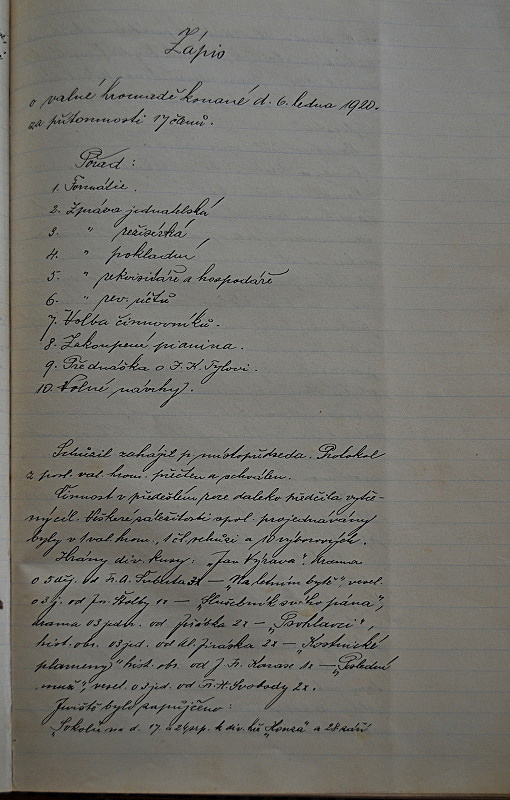 Zápis
o valné hromadě konané d. 6. ledna 1920.
za přítomnosti 17 členů.
Pořad :
1. Formálie.
2. Zpráva jednatelská
3. " režisérská
4. " pokladní
5. " rekvisitáře a hospodáře
6. " rev. účtů
7. Volba činovníků.
8. Zakoupení pianina.
9. Přednáška o J. K. Tylovi.
10. Volné návrhy.
Schůzi zahájil p. místopředseda. Protokol
z posl. val. hrom. přečten a schválen.
Činnost v předešlém roce daleko předčila vytče-
ný cíl. Veškeré záležitosti spol. projednávány
byly v 1 val. hrom., 1 čl. schůzi a 10 výborových.
Hrány div. kusy: „Jan Výrava", drama
o 5 děj. od Fr. A. Šuberta 3x – „Na letním bytě", vesel.
o 3 j. od Jos. Štolby 1x – „Služebník svého pána",
drama o 3 jedn. od Jeřábka 2x – „Psohlavci",
hist. obr. o 3 jed. od Al. Jiráska 2x – „Kostnické
plameny" hist. obr. od J. 1x – „Poslední
muž", vesel. o 3 jed. od Fr. X. Svobody 2x.
Jeviště bylo zapůjčeno:
„Sokolu" na d. 17. a 24. srp. k div. hře „Honza" a 28. září